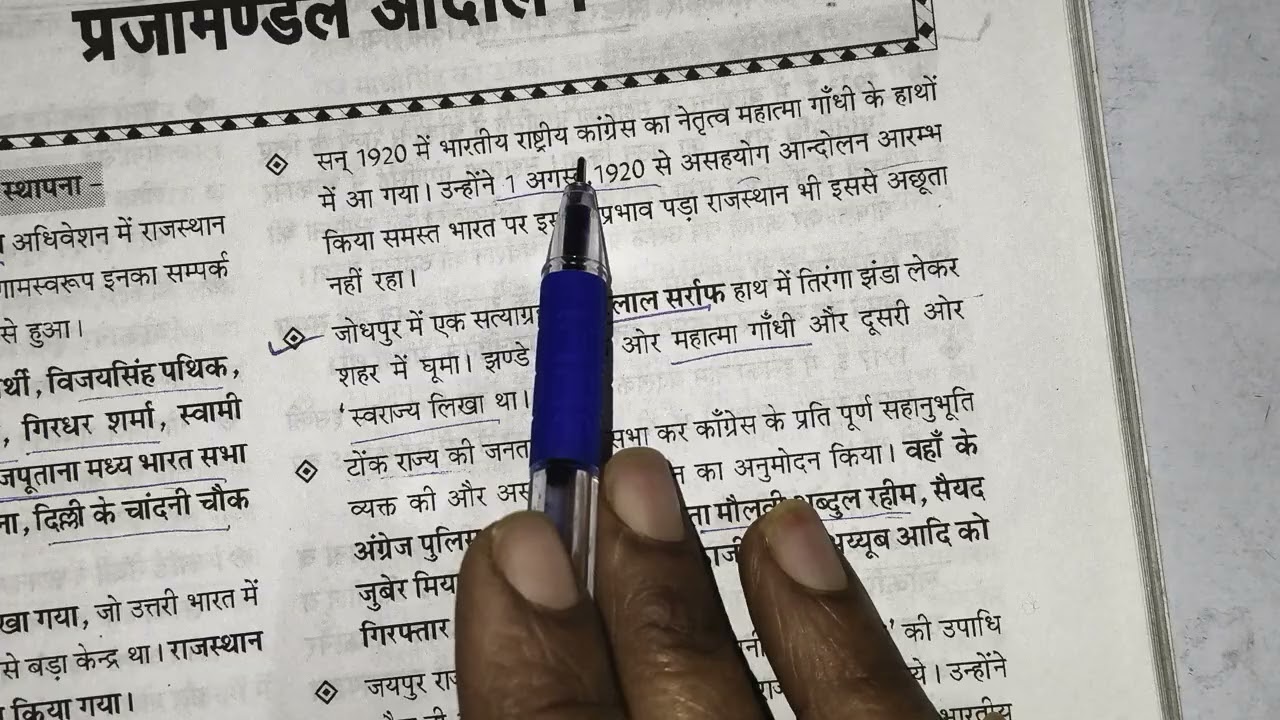 प्रजामण्डल आंदोलन
स्थापना –
अधिवेशन में राजस्थान
इनका सम्पर्क
से हुआ।
विजयसिंह पथिक,
, गिरधर शर्मा, स्वामी
मध्य भारत सभा
दिल्ली के चांदनी चौक
गया, जो उत्तरी भारत में
से बड़ा केन्द्र था। राजस्थान
किया गया।
सन् 1920 में भारतीय राष्ट्रीय कांग्रेस का नेतृत्व महात्मा गाँधी के हाथों
में आ गया। उन्होंने 1 अगस्त 1920 से असहयोग आन्दोलन आरम्भ
किया समस्त भारत पर प्रभाव पड़ा राजस्थान भी इससे अछूता
नहीं रहा।
जोधपुर में एक लाल सर्राफ हाथ में तिरंगा झंडा लेकर
शहर में घूमा। झण्डे ओर महात्मा गाँधी और दूसरी ओर
'स्वराज्य लिखा था।
टोंक राज्य की सभा कर काँग्रेस के प्रति पूर्ण सहानुभूति
व्यक्त की और का अनुमोदन किया। वहाँ के
अंग्रेज मौलवी अब्दुल रहीम, सैयद
जुबेर आदि को
गिरफ्तार
जयपुर की उपाधि
उन्होंने
भारतीय